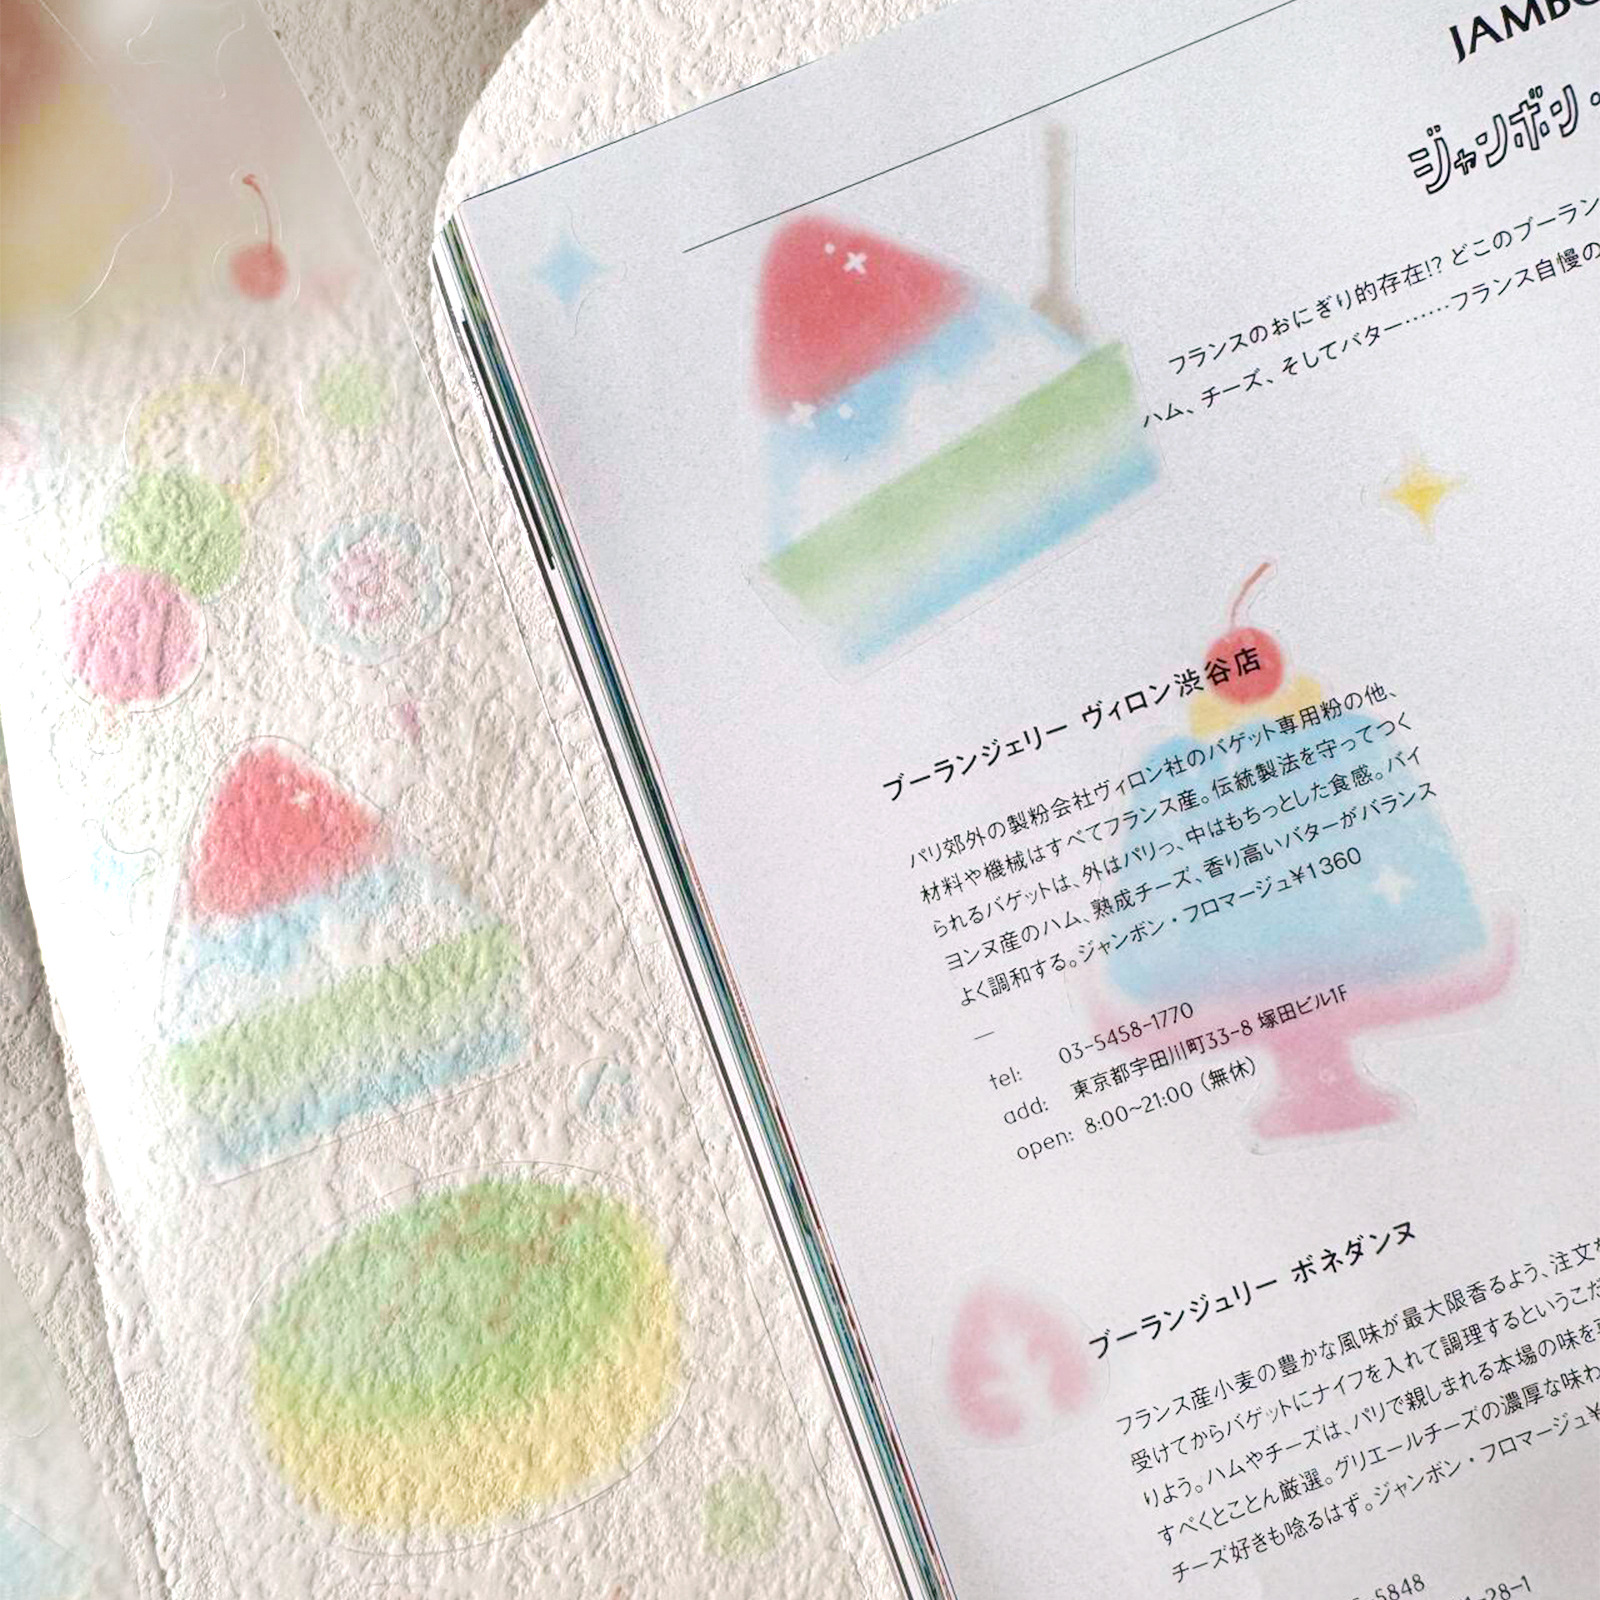 JAMBO
ジャンボン・
フランスのおにぎり的存在!? どこのブーラン
ハム、チーズ、そしてバター……フランス自慢の
ブーランジェリー ヴィロン渋谷店
パリ郊外の製粉会社ヴィロン社のバゲット専用粉の他、
材料や機械はすべてフランス産。伝統製法を守ってつく
られるバゲットは、外はパリっ、中はもちっとした食感。バイ
ヨンヌ産のハム、熟成チーズ、香り高いバターがバランス
よく調和する。ジャンボン・フロマージュ¥1360
—
tel: 03-5458-1770
add: 東京都宇田川町33-8 塚田ビル1F
open: 8:00~21:00 (無休)
ブーランジュリー ボネダンヌ
フランス産小麦の豊かな風味が最大限香るよう、注文を
受けてからバゲットにナイフを入れて調理するというこだ
りよう。ハムやチーズは、パリで親しまれる本場の味を再
すべくとことん厳選。グリエールチーズの濃厚な味わ
チーズ好きも唸るはず。ジャンボン・フロマージュ¥
5848
28-1